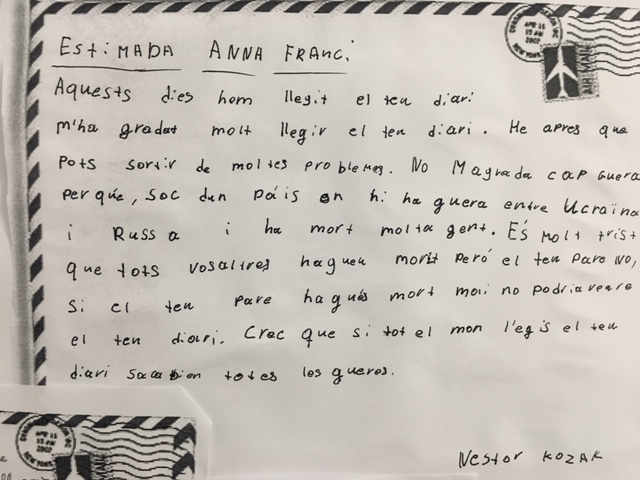 Estimada Anna Franc.
Aquests dies hem llegit el teu diari
m'ha gradat molt llegir el teu diari. He apres que
pots sortir de moltes problemes. No Magrada cap guera
perqúe, soc dun páis on hi ha guera entre Ucraïna
i Russa i ha mort molta gent. És molt trist
que tots vosaltres hagueu morit peró el teu pare NO,
si el teu pare hagués mort mai no podria veure
el teu diari. Crec que si tot el mon l'egis el teu
diari sacabarien totes les gueres.
Nestor KOZAK
APR 15
10 AM
2007
AIR MAIL
APR 15
10 AM
2007